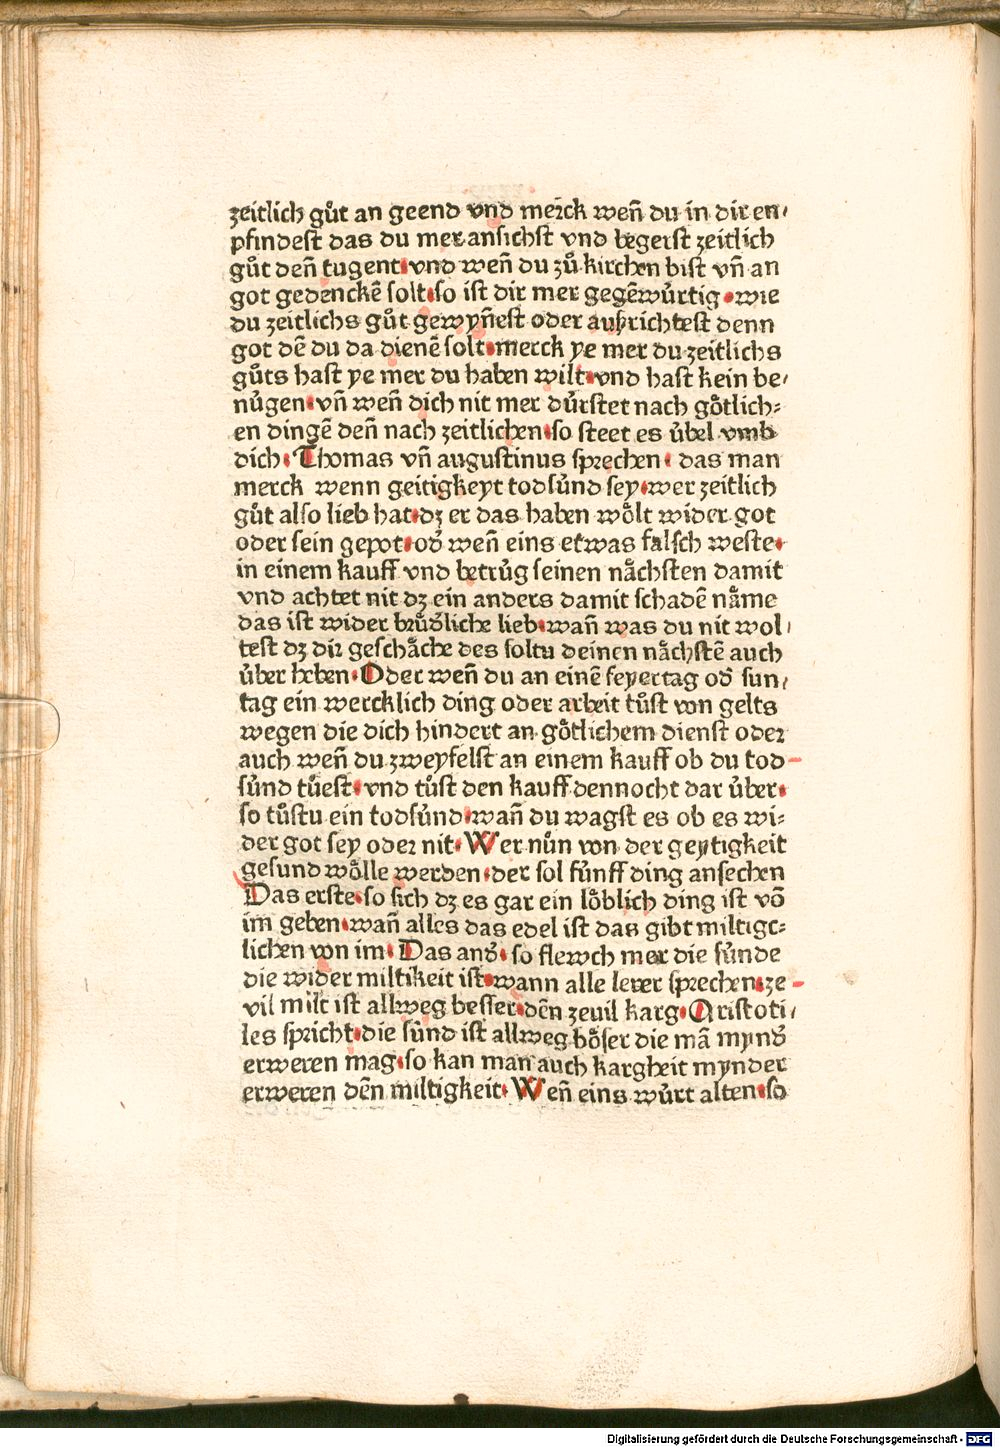 zeitlich gůt an geend vnd merck weñ du in dir en-
pfindest das du mer ansichst vnd begerst zeitlich
gůt deñ tugent·vnd weñ du zů kirchen bist vñ an
got gedenckē solt·so ist dir mer gegēwu̇rtig·wie
du zeitlichs gůt gewyñest oder außrichtest denn
got dē du da dienē solt·merck ye mer du zeitlichs
gůts hast ye mer du haben wilt·vnd hast kein be-
nu̇gen·vñ weñ dich nit mer du̇rstet nach go̊tlich-
en dingē deñ nach zeitlichen·so steet es u̇bel vmb
dich·Thomas vñ augustinus sprechen· das man
merck wenn geitigkeyt todsu̇nd sey·wer zeitlich
gůt also lieb hat·dz er das haben wo̊lt wider got
oder sein gepot·od̓ weñ eins etwas falsch weste·
in einem kauff vnd betru̇g seinen na̋chsten damit
vnd achtet nit dz ein anders damit schadē na̋me
das ist wider bru̇d̓liche lieb·wañ was du nit wol-
test dz dir gescha̋che des soltu deinen na̋chstē auch
u̇ber heben·Oder weñ du an einē feyertag od̓ sun-
tag ein wercklich ding oder arbeit tu̇st von gelts
wegen die dich hindert an go̊tlichem dienst oder
auch weñ du zweyfelst an einem kauff ob du tod-
su̇nd tůest·vnd tůst den kauff dennocht dar u̇ber·
so tůstu ein todsu̇nd·wañ du wagst es ob es wi-
der got sey oder nit·Wer nůn von der geytigkeit
gesund wo̊lle werden·der sol fu̇nff ding ansechen
Das erste·so sich dz es gar ein lo̊blich ding ist vō
im geben·wañ alles das edel ist das gibt miltige-
lichen von im·Das and̓·so flewch mer die su̇nde
die wider miltikeit ist·wann alle lerer sprechen·ze-
vil milt ist allweg besser·dēn zeuil karg·Aristoti-
les spricht·die su̇nd ist allweg bo̊ser die mā mynd̓
erweren mag·so kan man auch kargheit mynder
erweren dēn miltigkeit·Weñ eins wu̇rt alten·so
Digitalisierung gefördert durch die Deutsche Forschungsgemeinschaft - DFG